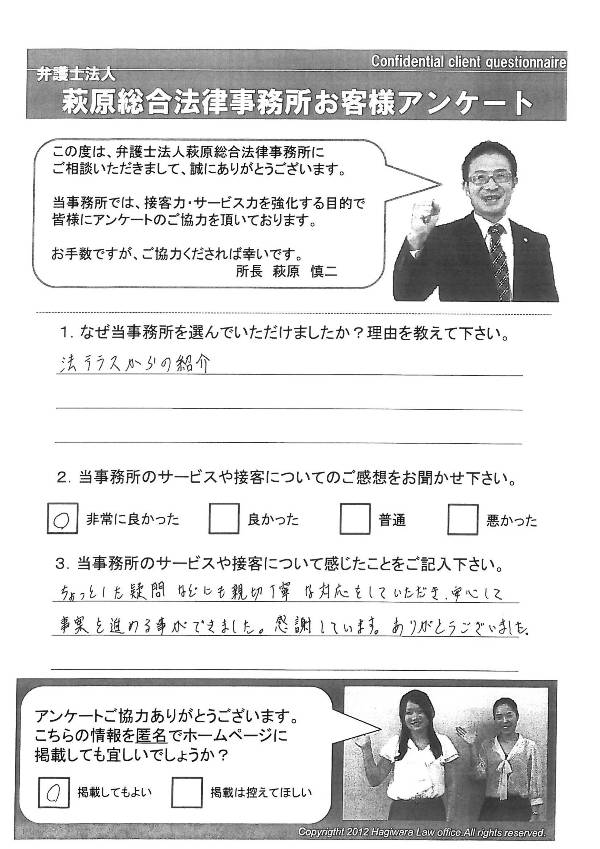 Confidential client questionnaire
弁護士法人
萩原総合法律事務所お客様アンケート
この度は、弁護士法人萩原総合法律事務所に
ご相談いただきまして、誠にありがとうございます。
当事務所では、接客力・サービス力を強化する目的で
皆様にアンケートのご協力を頂いております。
お手数ですが、ご協力くだされば幸いです。
所長 萩原 慎二
1. なぜ当事務所を選んでいただけましたか？理由を教えて下さい。
法テラスからの紹介
2. 当事務所のサービスや接客についてのご感想をお聞かせ下さい。
○ 非常に良かった 良かった 普通 悪かった
3. 当事務所のサービスや接客について感じたことをご記入下さい。
ちょっとした疑問などにも親切丁寧な対応をしていただき、安心して
事案を進める事ができました。感謝しています。ありがとうございました。
アンケートご協力ありがとうございます。
こちらの情報を匿名でホームページに
掲載しても宜しいでしょうか？
○ 掲載してもよい 掲載は控えてほしい
Copyrigtht 2012 Hagiwara Law office.All rights reserved.